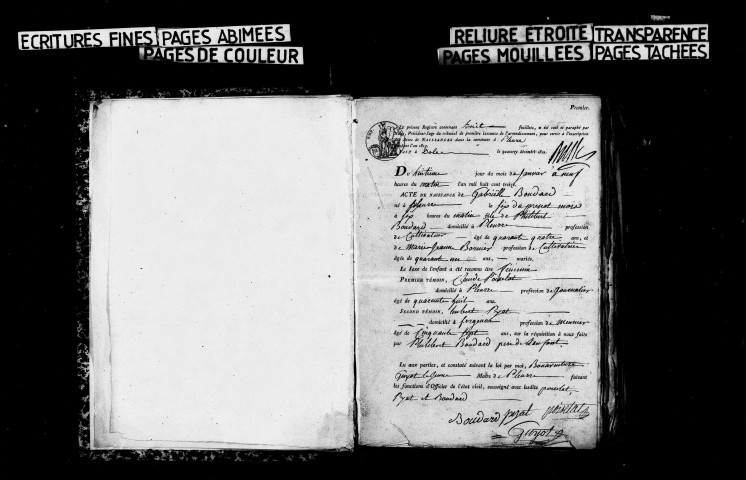 ECRITURES FINES PAGES ABIMEES
PAGES DE COULEUR
RELIURE ETROITE TRANSPARENCE
PAGES MOUILLEES PAGES TACHEES
Premier.
Le présent Registre contenant huit feuillets, a été coté et paraphé par
Président-Juge du tribunal de première instance de l'arrondissement, pour servir à l'inscription
des Actes de NAISSANCES dans la commune d Pleure
pendant l'an 1813.
FAIT à Dole le quatorze décembre 1812.
DU huitieme jour du mois de janvier à neuf
heures du matin l'an mil huit cent treize.
ACTE DE NAISSANCE de Gabrielle Boudard
né à pleure le six du present mois
à six heures du matin fille de Philibert
Boudard domicilié à Pleure profession
de Cultivateur âgé de quarante quatre ans, et
de Marie Jeanne profession de Cultivatrice
âgée de quarante un ans, mariés.
Le Sexe de l'enfant a été reconnu être féminin
PREMIER TÉMOIN, Claude
domicilié à Pleure profession de journalier
âgé de quarante huit ans
SECOND TÉMOIN, hubert Pyat
domicilié à profession de Meunier
âgé de cinquante sept ans, sur la réquisition à nous faite
par Philibert Boudard pere de l'enfant.
Lu aux parties, et constaté suivant la loi par moi, Bonaventure
Guyot le jeune Maire de Pleure faisant
les fonctions d'Officier de l'état civil, soussigné avec lesdits
Pyat et Boudard
Boudard pyat
Guyot